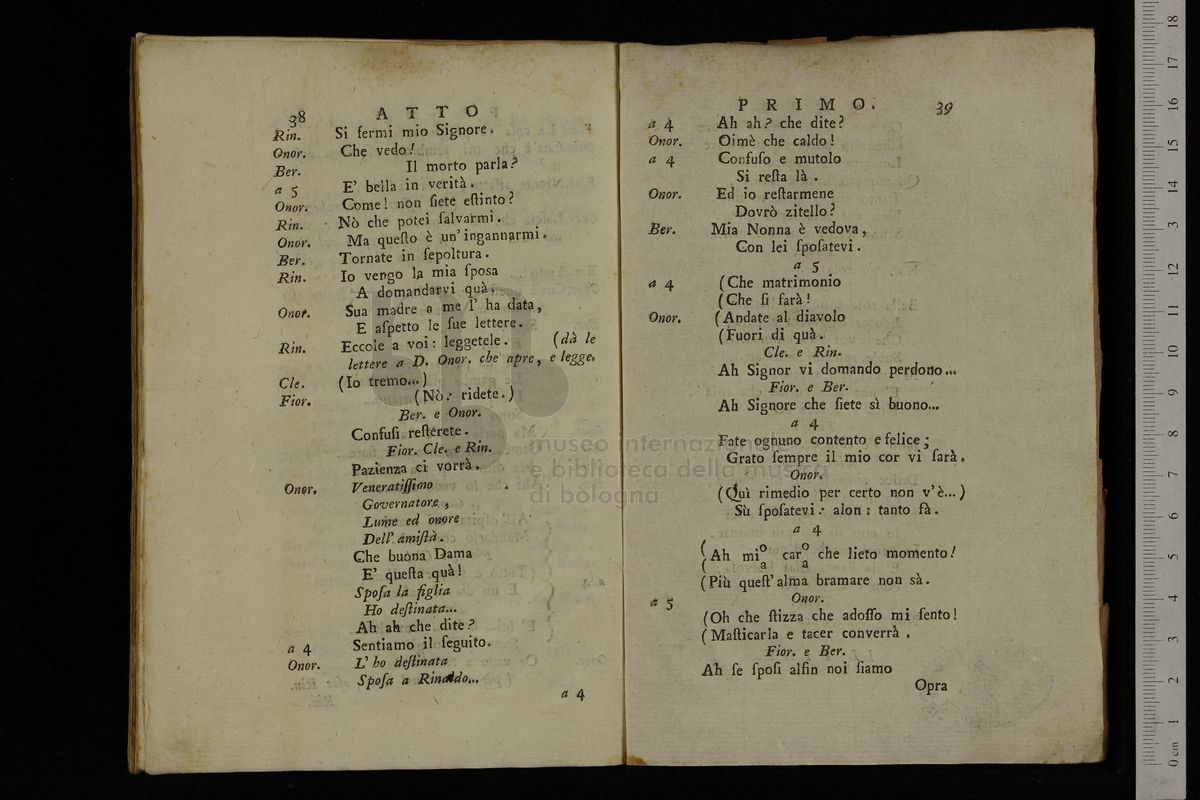 38 ATTO
Rin. Si fermi mio Signore.
Onor. Che vedo!
Ber. Il morto parla?
a 5 E' bella in verità.
Onor. Come! non ſiete eſtinto?
Rin. Nò che potei ſalvarmi.
Onor. Ma queſto è un' ingannarmi.
Ber. Tornate in ſepoltura.
Rin. Io vengo la mia ſpoſa
A domandarvi quà.
Onor. Sua madre a me l' ha data,
E aſpetto le ſue lettere.
Rin. Eccole a voi: leggetele. (dà le
lettere a D. Onor. che apre, e legge.
Cle. (Io tremo...)
Fior. (Nò: ridete.)
Ber. e Onor.
Confuſi reſterete.
Fior. Cle. e Rin.
Pazienza ci vorrà.
Onor. Veneratiſſimo
Governatore,
Lume ed onore
Dell' amiſtà.
Che buona Dama
E' queſta quà!
Spoſa la figlia
Ho deſtinata...
Ah ah che dite?
a 4 Sentiamo il ſeguito.
Onor. L' ho deſtinata
Spoſa a Rinaldo...
a 4
PRIMO. 39
a 4 Ah ah? che dite?
Onor. Oimè che caldo!
a 4 Confuſo e mutolo
Si reſta là.
Onor. Ed io reſtarmene
Dovrò zitello?
Ber. Mia Nonna è vedova,
Con lei ſpoſatevi.
a 5
a 4 (Che matrimonio
(Che ſi farà!
Onor. (Andate al diavolo
(Fuori di quà.
Cle. e Rin.
Ah Signor vi domando perdono...
Fior. e Ber.
Ah Signore che ſiete sì buono...
a 4
Fate ognuno contento e felice;
Grato ſempre il mio cor vi ſarà.
Onor.
(Quì rimedio per certo non v'è...)
Sù ſpoſatevi: alon: tanto fà.
a 4
(Ah mi o/a car o/a che lieto momento!
(Più queſt' alma bramare non sà.
Onor.
a 5 (Oh che ſtizza che adoſſo mi ſento!
(Maſticarla e tacer converrà.
Fior. e Ber.
Ah ſe ſpoſi alfin noi ſiamo
Opra
museo internazionale
e biblioteca della musica
di bologna
0 cm 1 2 3 4 5 6 7 8 9 10 11 12 13 14 15 16 17 18